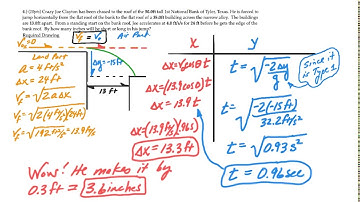 6.) (20pts) Crazy Joe Clayton has been chased to the roof of the 50.00 tall 1st National Bank of Tyler, Texas. He is forced to
jump horizontally from the flat roof of the bank to the flat roof of a 35.00 building across the narrow alley. The buildings
are 13.0ft apart. From a standing start on the bank roof, Joe accelerates at 4.0 ft/s/s for 24 ft before he gets to the edge of the
bank roof. By how many inches will he short or long in his jump?
Required Drawing
V₀=0
V_F = V₀
Air Part
Land Part
a = 4 ft/s²
Δx = 24 ft
V_F = √2aΔx
V_F = √2(4 ft/s²)(24 ft)
V_F = √192 ft²/s² = 13.9 ft/s
Δy = -15 ft
13 FT
X
Δx = V₀cosθ t
Δx = (13.9cos0)t
Δx = 13.9 t
Δx = (13.9 ft/s)(.96s)
Δx = 13.3 ft
y
t = √-2Δy/g
Since it is Type 1
t = √-2(-15ft)/32.2 ft/s²
t = √0.93 s²
t = 0.96 sec
Wow! He makes it by
0.3 ft = 3.6 inches